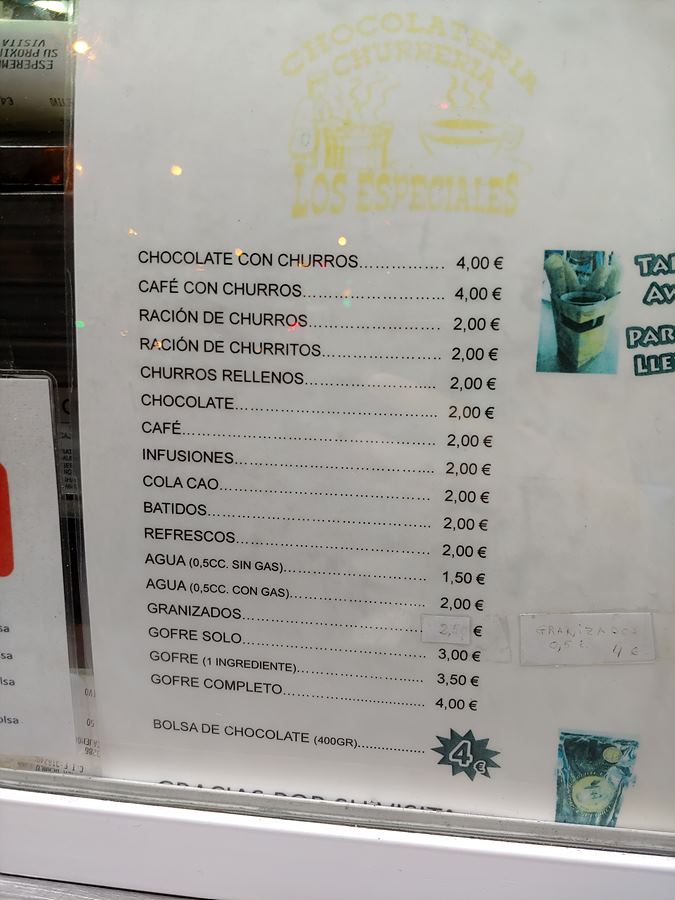 CHOCOLATERIA
CHURRERIA
LOS ESPECIALES
CHOCOLATE CON CHURROS................ 4,00 €
CAFÉ CON CHURROS.......................... 4,00 €
RACIÓN DE CHURROS......................... 2,00 €
RACIÓN DE CHURRITOS...................... 2,00 €
CHURROS RELLENOS......................... 2,00 €
CHOCOLATE...................................... 2,00 €
CAFÉ................................................ 2,00 €
INFUSIONES...................................... 2,00 €
COLA CAO......................................... 2,00 €
BATIDOS........................................... 2,00 €
REFRESCOS...................................... 2,00 €
AGUA (0,5CC. SIN GAS)........................... 1,50 €
AGUA (0,5CC. CON GAS).......................... 2,00 €
GRANIZADOS.................................... €
GOFRE SOLO.................................... 3,00 €
GOFRE (1 INGREDIENTE)......................... 3,50 €
GOFRE COMPLETO............................. 4,00 €
BOLSA DE CHOCOLATE (400GR)............... 4€
GRACIAS POR SU VISITA
GRANIZADOS
0,5 4 €
VISITA
SU PROXIM
ESPEREM